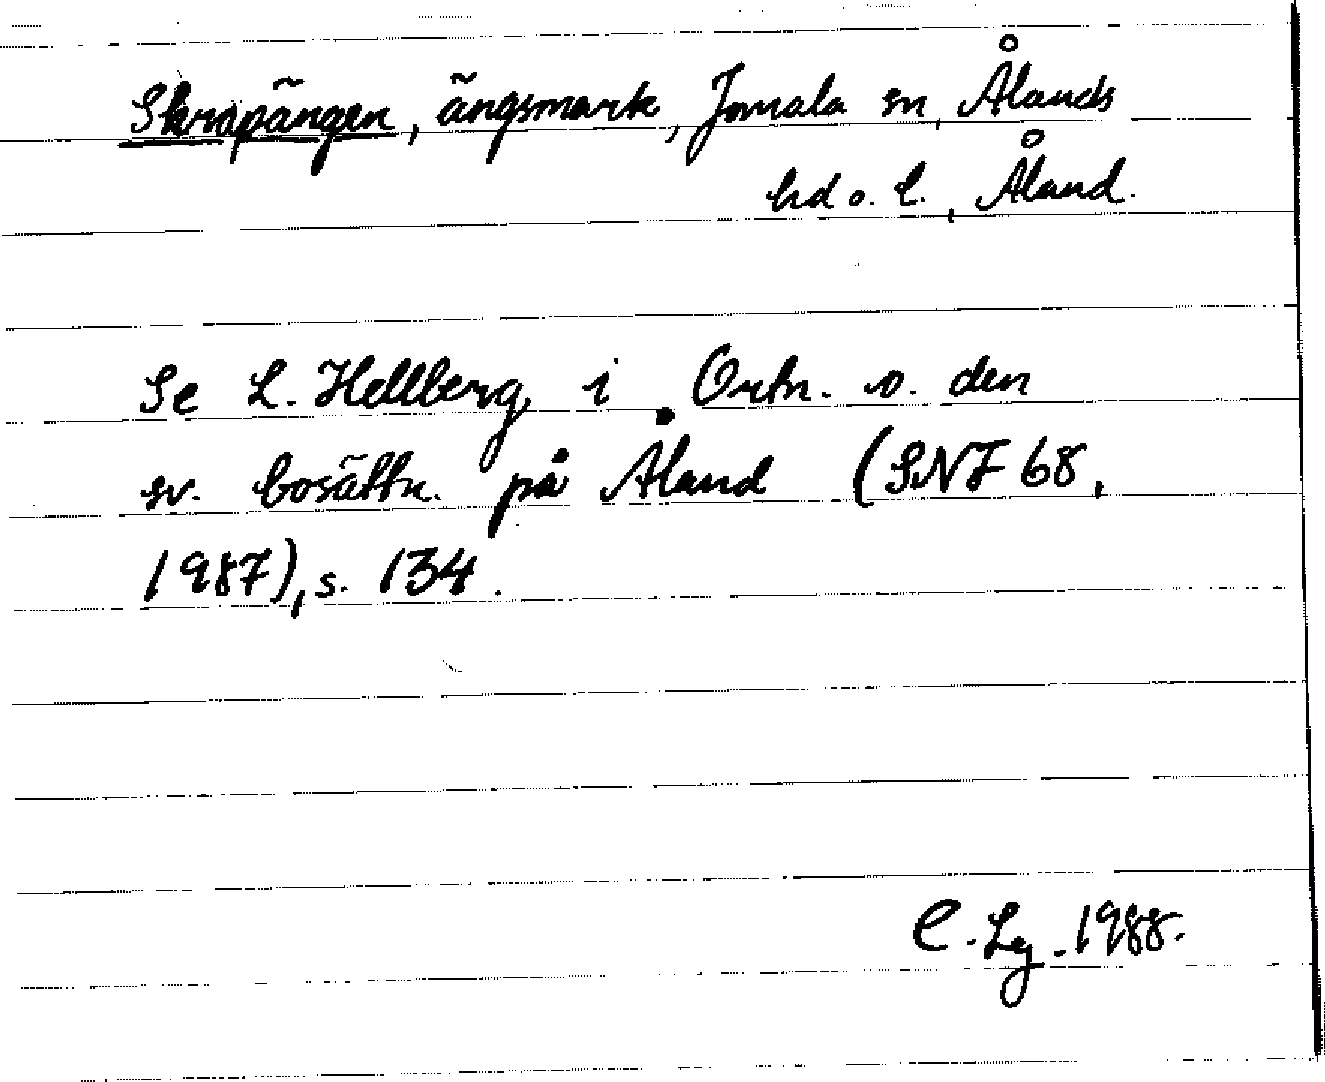 Skrapängen, ängsmark, Jomala sn, Ålands
hd o. l., Åland.
Se L. Hellberg i Ortn. o. den
sv. bosättn. på Åland (SNF 68,
1987), s. 134.
C. Lg. 1988.